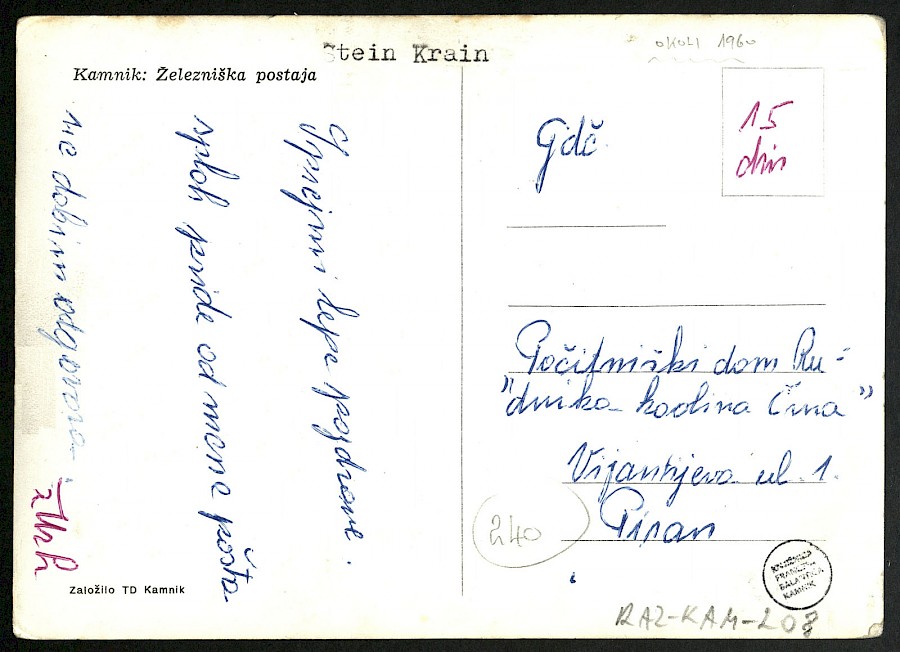 Stein Krain
OKOLI 1960
Kamnik: Železniška postaja
15
din
Gdč.
Sprejmi lepe pozdrave.
sploh pride od mene pošta
ne dobim odgovora.
Počitniški dom Ru=
"dnika kaolina Črna"
ul. 1.
Piran
240
Založilo TD Kamnik
KNJIŽNICA
FRANCETA
BALANTIČA
KAMNIK
RAZ-KAM-208